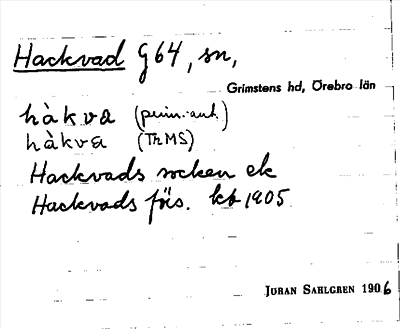 Hackvad G64, sn,
Grimstens hd, Örebro län
hàkva (prim.-ank.)
hàkva (ThMS)
Hackvads socken ek
Hackvads förs. kb 1905
JÖRAN SAHLGREN 1906